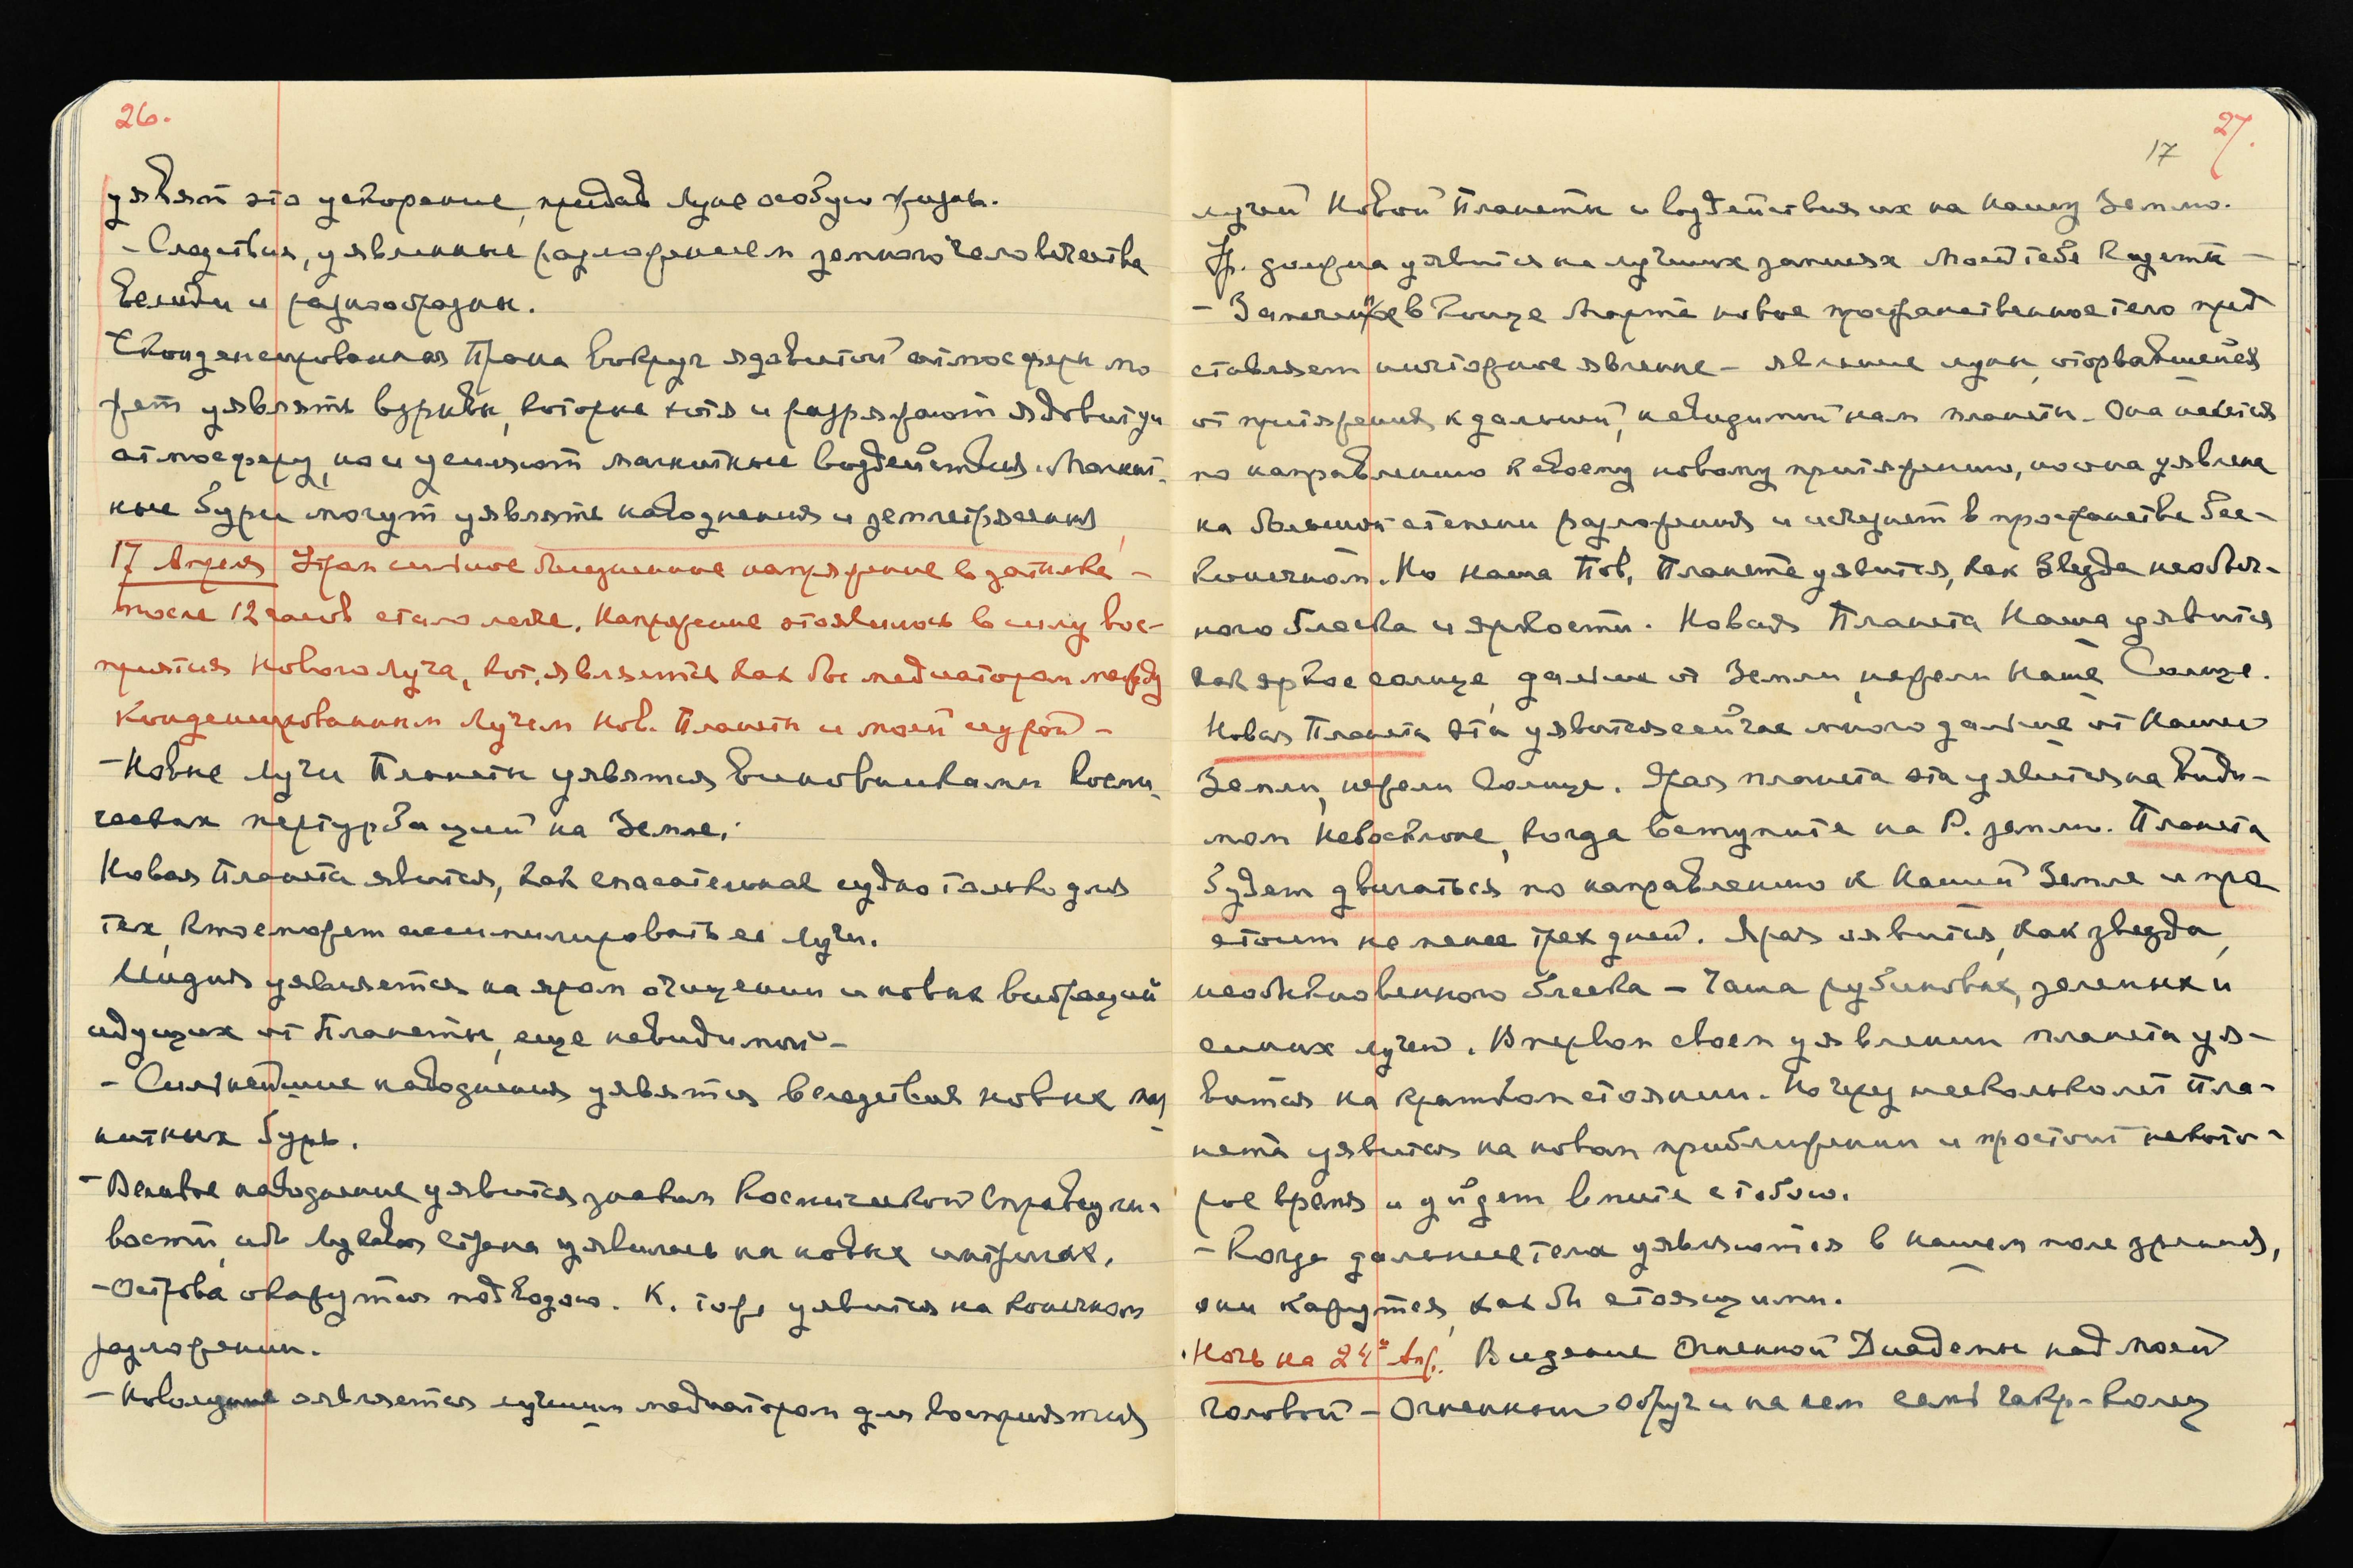 26.
уявят это ускорение, придав Луне особую жизнь.
- Следствия, уявленные разложением земного человечества
велики и разнообразны.
Сконденсированная Прана вокруг ядовитой атмосферы мо
жет уявлять взрывы, которые хотя и разряжают ядовитую
атмосферу, но и усиляют магнитные воздействия. Магнит-
ные бури могут уявлять наводнения и землетрясения
17 Апреля Утром сильное болезненное напряжение в затылке -
после 12 часов стало легче. Напряжение отозвалось в силу вос-
приятия Нового Луча, кот. является как бы медиатором между
Конденсированным Лучем Нов. Планеты и моей аурой -
- Новые Лучи Планеты уявятся виновниками косми-
ческих пертурбаций на Земле.
Новая Планета явится, как спасательное судно только для
тех, кто сможет ассимилировать ее Лучи.
Индия уявляется на яром очищении и новых вибраций
идущих от Планеты, еще невидимой -
- Сильнейшие наводнения уявятся вследствие новых маг
нитных бурь.
- Великое наводнение уявится знаком Космической Справедли-
вости, ибо Лукавая страна уявилась на новых интригах.
- Острова окажутся под водою. К. тоже уявится на конечном
разложении.
- Новолуние является лучшим медиатором для восприятия
27.
17
лучей Новой Планеты и воздействия их на нашу Землю.
Ур. должна уявиться на лучших записях Моей тебе Радости -
- Замеченное в конце Марта новое пространственное тело пред
ставляет ничтожное явление - явление луны, оторвавшейся
от притяжения к дальней, невидимой нам планеты. Она несется
по направлению к своему новому притяжению, но она уявлена
на большой степени разложения и исчезнет в пространстве бес-
конечном. Но наша Нов. Планета уявится, как Звезда необыч-
ного блеска и яркости. Новая Планета Наша уявится
как яркое солнце, дальше от Земли, нежели Наше Солнце.
Новая Планета эта уявится сейчас много дальше от Нашей
Земли, нежели Солнце. Ярая планета эта уявится на види-
мом небосклоне, когда вступите на Р. землю. Планета
будет двигаться по направлению к Нашей Земле и про
стоит не менее трех дней. Ярая уявится, как звезда,
необыкновенного блеска - Чаша рубиновых, зеленых и
синих лучей. В первом своем уявлении планета уя-
вится на кратком стоянии. Но через несколько лет Пла-
нета уявится на новом приближении и простоит некото-
рое время и уйдет вместе с тобою.
- Когда дальние тела уявляются в нашем поле зрения,
они кажутся, как бы стоящими.
Ночь на 24ое Апр. Видение Огненной Диадемы над моей
головой - Огненный Обруч и на нем семь чакр-колец